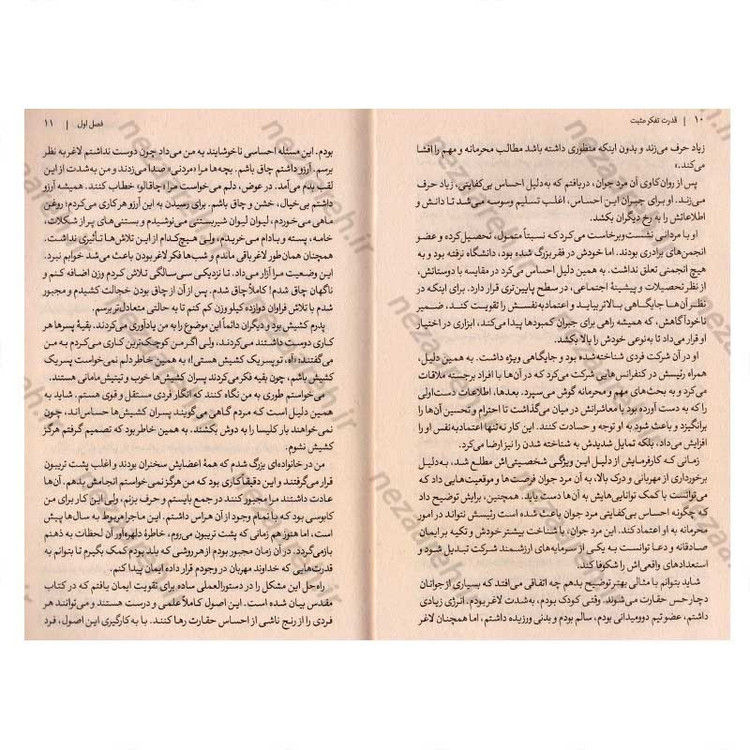 ۱۰ | قدرت تفکر مثبت
زیاد حرف می‌زند و بدون اینکه منظوری داشته باشد مطالب محرمانه و مهم را افشا
می‌کند.»
پس از روان‌کاوی آن مرد جوان، دریافتم که به‌دلیل احساس بی‌کفایتی، زیاد حرف
می‌زند. او برای جبران این احساس، اغلب تسلیم وسوسه می‌شد تا دانش و
اطلاعاتش را به رخ دیگران بکشد.
او با مردانی نشست‌وبرخاست می‌کرد که نسبتاً متمول، تحصیل‌کرده و عضو
انجمن‌های برادری بودند. اما خودش در فقر بزرگ شده بود، دانشگاه نرفته بود و به
هیچ انجمنی تعلق نداشت. به همین دلیل احساس می‌کرد در مقایسه با دوستانش،
از نظر تحصیلات و پیشینهٔ اجتماعی، در سطح پایین‌تری قرار دارد. برای اینکه در
نظر آن‌ها جایگاهی بالاتر بیابد و اعتمادبه‌نفسش را تقویت کند، ضمیر
ناخودآگاهش، که همیشه راهی برای جبران کمبودها پیدا می‌کند، ابزاری در اختیار
او قرار می‌داد تا به‌نوعی خودش را بالا بکشد.
او در آن شرکت فردی شناخته‌شده بود و جایگاهی ویژه داشت. به همین دلیل،
همراه رئیسش در کنفرانس‌هایی شرکت می‌کرد که در آن‌ها با افراد برجسته ملاقات
می‌کرد و به بحث‌های مهم و محرمانه گوش می‌سپرد. بعدها، اطلاعات دست‌اولی
را که به دست آورده بود با معاشرانش در میان می‌گذاشت تا احترام و تحسین آن‌ها را
برانگیزد و باعث شود به او توجه و حسادت کنند. این کار نه‌تنها اعتمادبه‌نفس او را
افزایش می‌داد، بلکه تمایل شدیدش به شناخته شدن را نیز ارضا می‌کرد.
زمانی که کارفرمایش از دلیل این ویژگی شخصیتی‌اش مطلع شد، به‌دلیل
برخورداری از مهربانی و درک بالا، به آن مرد جوان فرصت‌ها و موقعیت‌هایی داد که
می‌توانست با کمک توانایی‌هایش به آن‌ها دست یابد. همچنین، برایش توضیح داد
که چگونه احساس بی‌کفایتی مرد جوان باعث شده است رئیسش نتواند در امور
محرمانه به او اعتماد کند. این مرد جوان، با شناخت بیشتر خودش و تکیه بر ایمان
صادقانه و دعا توانست به یکی از سرمایه‌های ارزشمند شرکت تبدیل شود و
استعدادهای واقعی‌اش را شکوفا کند.
شاید بتوانم با مثالی بهتر توضیح بدهم چه اتفاقی می‌افتد که بسیاری از جوانان
دچار حس حقارت می‌شوند. وقتی کودک بودم، به‌شدت لاغر بودم. انرژی زیادی
داشتم، عضو تیم دوومیدانی بودم، سالم بودم و بدنی ورزیده داشتم، اما همچنان لاغر
فصل اول | ۱۱
بودم. این مسئله احساسی ناخوشایند به من می‌داد چون دوست نداشتم لاغر به نظر
برسم. آرزو داشتم چاق باشم. بچه‌ها مرا «مردنی» صدا می‌زدند و من به‌شدت از این
لقب بدم می‌آمد. در عوض، دلم می‌خواست مرا «چاقالو» خطاب کنند. همیشه آرزو
داشتم بی‌خیال، خشن و چاق باشم. برای رسیدن به این آرزو هر کاری می‌کردم؛ روغن
ماهی می‌خوردم، لیوان لیوان شیربستنی می‌نوشیدم و بستنی‌های پر از شکلات،
خامه، پسته و بادام می‌خریدم، ولی هیچ‌کدام از این تلاش‌ها تأثیری نداشت.
همچنان همان‌طور لاغر باقی ماندم و شب‌ها فکر لاغر بودن باعث می‌شد خوابم نبرد.
این وضعیت مرا آزار می‌داد. تا نزدیکی سی‌سالگی تلاش کردم وزن اضافه کنم و
ناگهان چاق شدم! کاملاً چاق شدم. پس از آن از چاق بودن خجالت کشیدم و مجبور
شدم با تلاش فراوان دوزاده کیلو وزن کم کنم تا به حالتی متعادل‌تر برسم.
پدرم کشیش بود و دیگران دائماً این موضوع را به من یادآوری می‌کردند. بقیهٔ پسرها هر
کاری دوست داشتند می‌کردند، ولی اگر من کوچک‌ترین کاری می‌کردم به من
می‌گفتند: «اُه، تو پسر یک کشیش هستی!» به همین خاطر دلم نمی‌خواست پسر یک
کشیش باشم، چون بقیه فکر می‌کردند پسران کشیش‌ها خوب و تیتیش‌مامانی هستند.
می‌خواستم طوری به من نگاه کنند که انگار فردی مستقل و قوی هستم. شاید به
همین دلیل است که مردم گاهی می‌گویند پسران کشیش‌ها حساس‌اند، چون
نمی‌خواهند بار کلیسا را به دوش بکشند. به همین خاطر بود که تصمیم گرفتم هرگز
کشیش نشوم.
من در خانواده‌ای بزرگ شدم که همهٔ اعضایش سخنران بودند و اغلب پشت تریبون
قرار می‌گرفتند و این دقیقاً کاری بود که من هرگز نمی‌خواستم انجامش بدهم. آن‌ها
عادت داشتند مرا مجبور کنند در جمع بایستم و حرف بزنم، ولی این کار برای من
کابوسی بود که با تمام وجود از آن هراس داشتم. این ماجرا مربوط به سال‌ها پیش
است، اما هنوز هم زمانی که پشت تریبون می‌روم، خاطرهٔ دلهره‌آور آن لحظات به ذهنم
بازمی‌گردد. در آن زمان مجبور بودم از هر روشی که بلد بودم کمک بگیرم تا بتوانم به
قدرت‌هایی که خداوند مهربان در وجودم قرار داده ایمان پیدا کنم.
راه‌حل این مشکل را در دستورالعملی ساده برای تقویت ایمان یافتم که در کتاب
مقدس بیان شده است. این اصول کاملاً علمی و درست هستند و می‌توانند هر
فردی را از رنج ناشی از احساس حقارت رها کنند. با به‌کارگیری این اصول، فرد